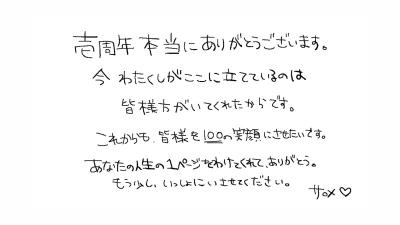 壱周年本当にありがとうございます。
今わたくしがここに立てているのは
皆様方がいてくれたからです。
これからも、皆様を100の笑顔にさせたいです。
あなたの人生の1ページをわけてくれて、ありがとう。
もう少し、いっしょにいさせてください。
サαメ♡